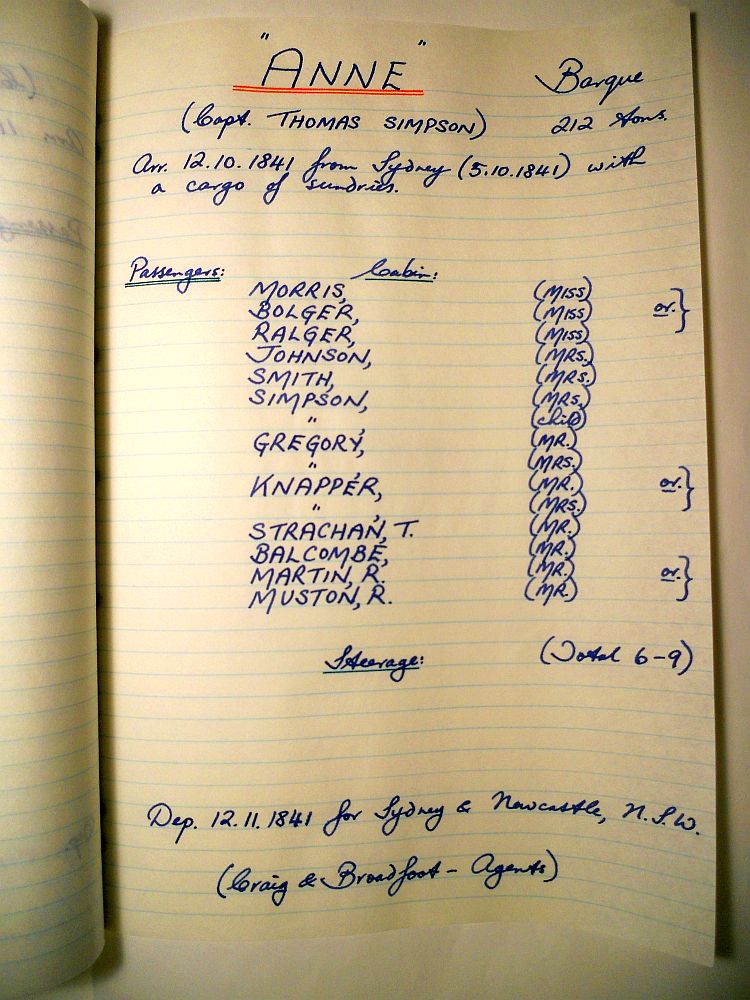 "ANNE" Barque
(Capt. THOMAS SIMPSON) 212 tons.
Arr. 12.10.1841 from Sydney (5.10.1841) with
a cargo of sundries.
Passengers: Cabin:
MORRIS, (MISS)
BOLGER, (MISS) or.}
RALGER, (MISS)
JOHNSON, (MRS.)
SMITH, (MRS.)
SIMPSON, (MRS.)
" , (child)
GREGORY, (MR.)
" , (MRS.)
KNAPPER, (MR.) or.}
" , (MRS.)
STRACHAN, T. (MR.)
BALCOMBE, (MR.)
MARTIN, R. (MR.) or.}
MUSTON, R. (MR.)
Steerage: (Total 6-9)
Dep. 12.11.1841 for Sydney & Newcastle, N.S.W.
(Craig & Broadfoot - Agents)